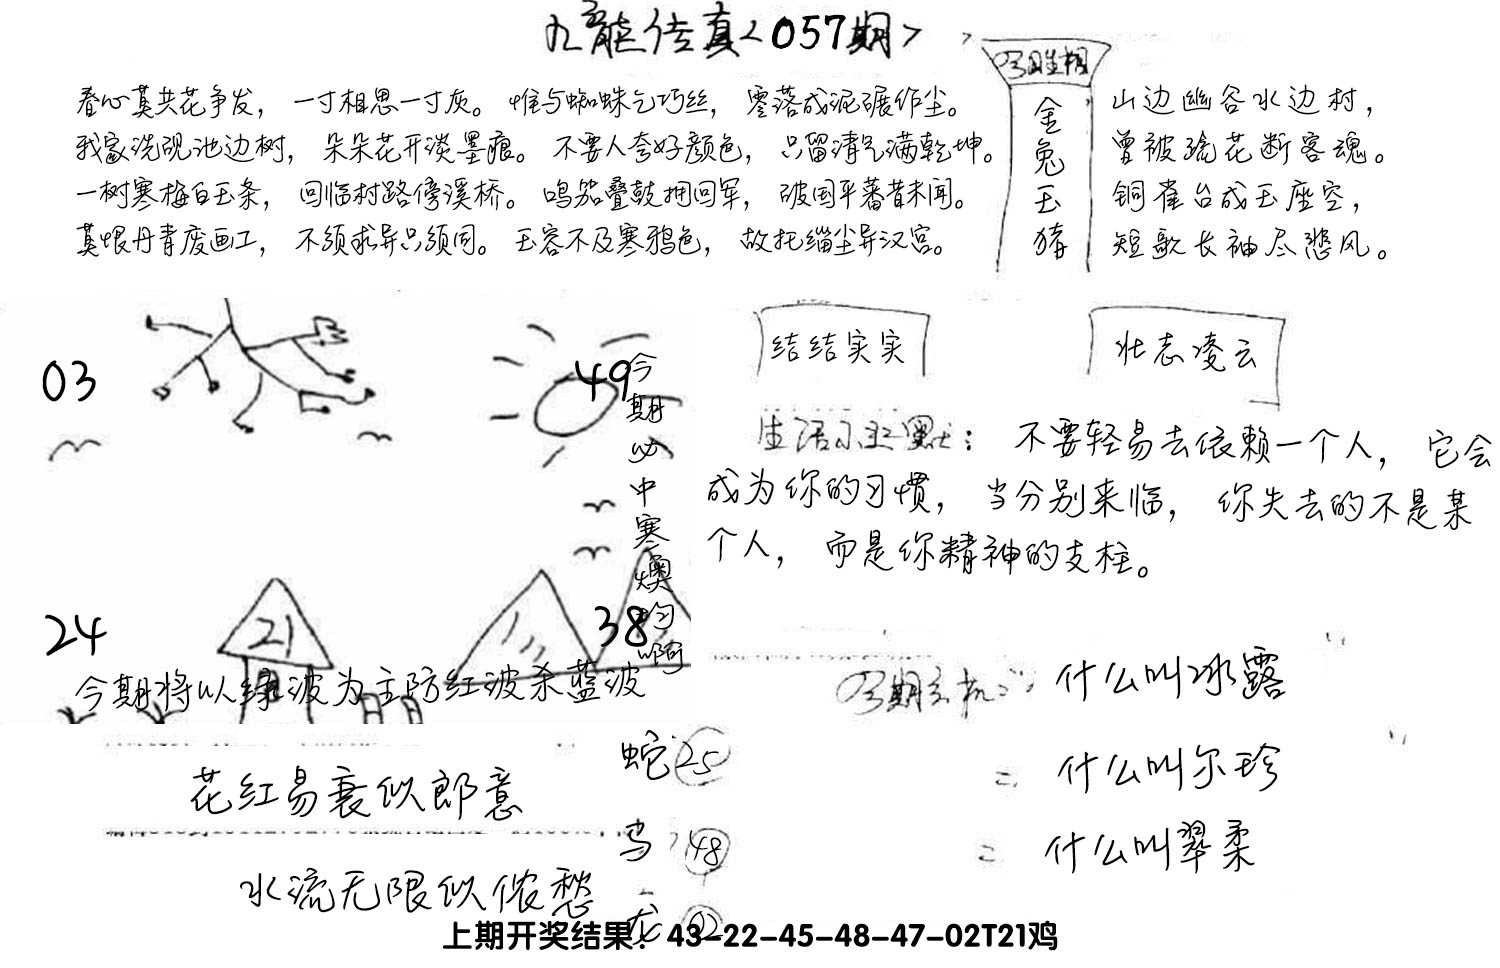 九龍传真<057期>
春心莫共花争发，一寸相思一寸灰。惟与蜘蛛乞巧丝，零落成泥碾作尘。
我家洗砚池边树，朵朵花开淡墨痕。不要人夸好颜色，只留清气满乾坤。
一树寒梅白玉条，回临村路傍溪桥。鸣笳叠鼓拥回军，破国平蕃昔未闻。
莫恨丹青废画工，不须求异只须同。玉容不及寒鸦色，故托缁尘异汉宫。
金兔玉猪
山边幽谷水边村，
曾被疏花断客魂。
铜雀台成玉座空，
短歌长袖尽悲风。
03
49
今期必中寒燠均啊
24
21
38
今期将以绿波为主防红波杀蓝波
结结实实
壮志凌云
生活小幽默：不要轻易去依赖一个人，它会
成为你的习惯，当分别来临，你失去的不是某
个人，而是你精神的支柱。
今期玄机：什么叫冰露
什么叫尔珍
什么叫翠柔
花红易衰似郎意
水流无限似侬愁
蛇 25
鸟 48
龙 02
上期开奖结果：43-22-45-48-47-02T21鸡